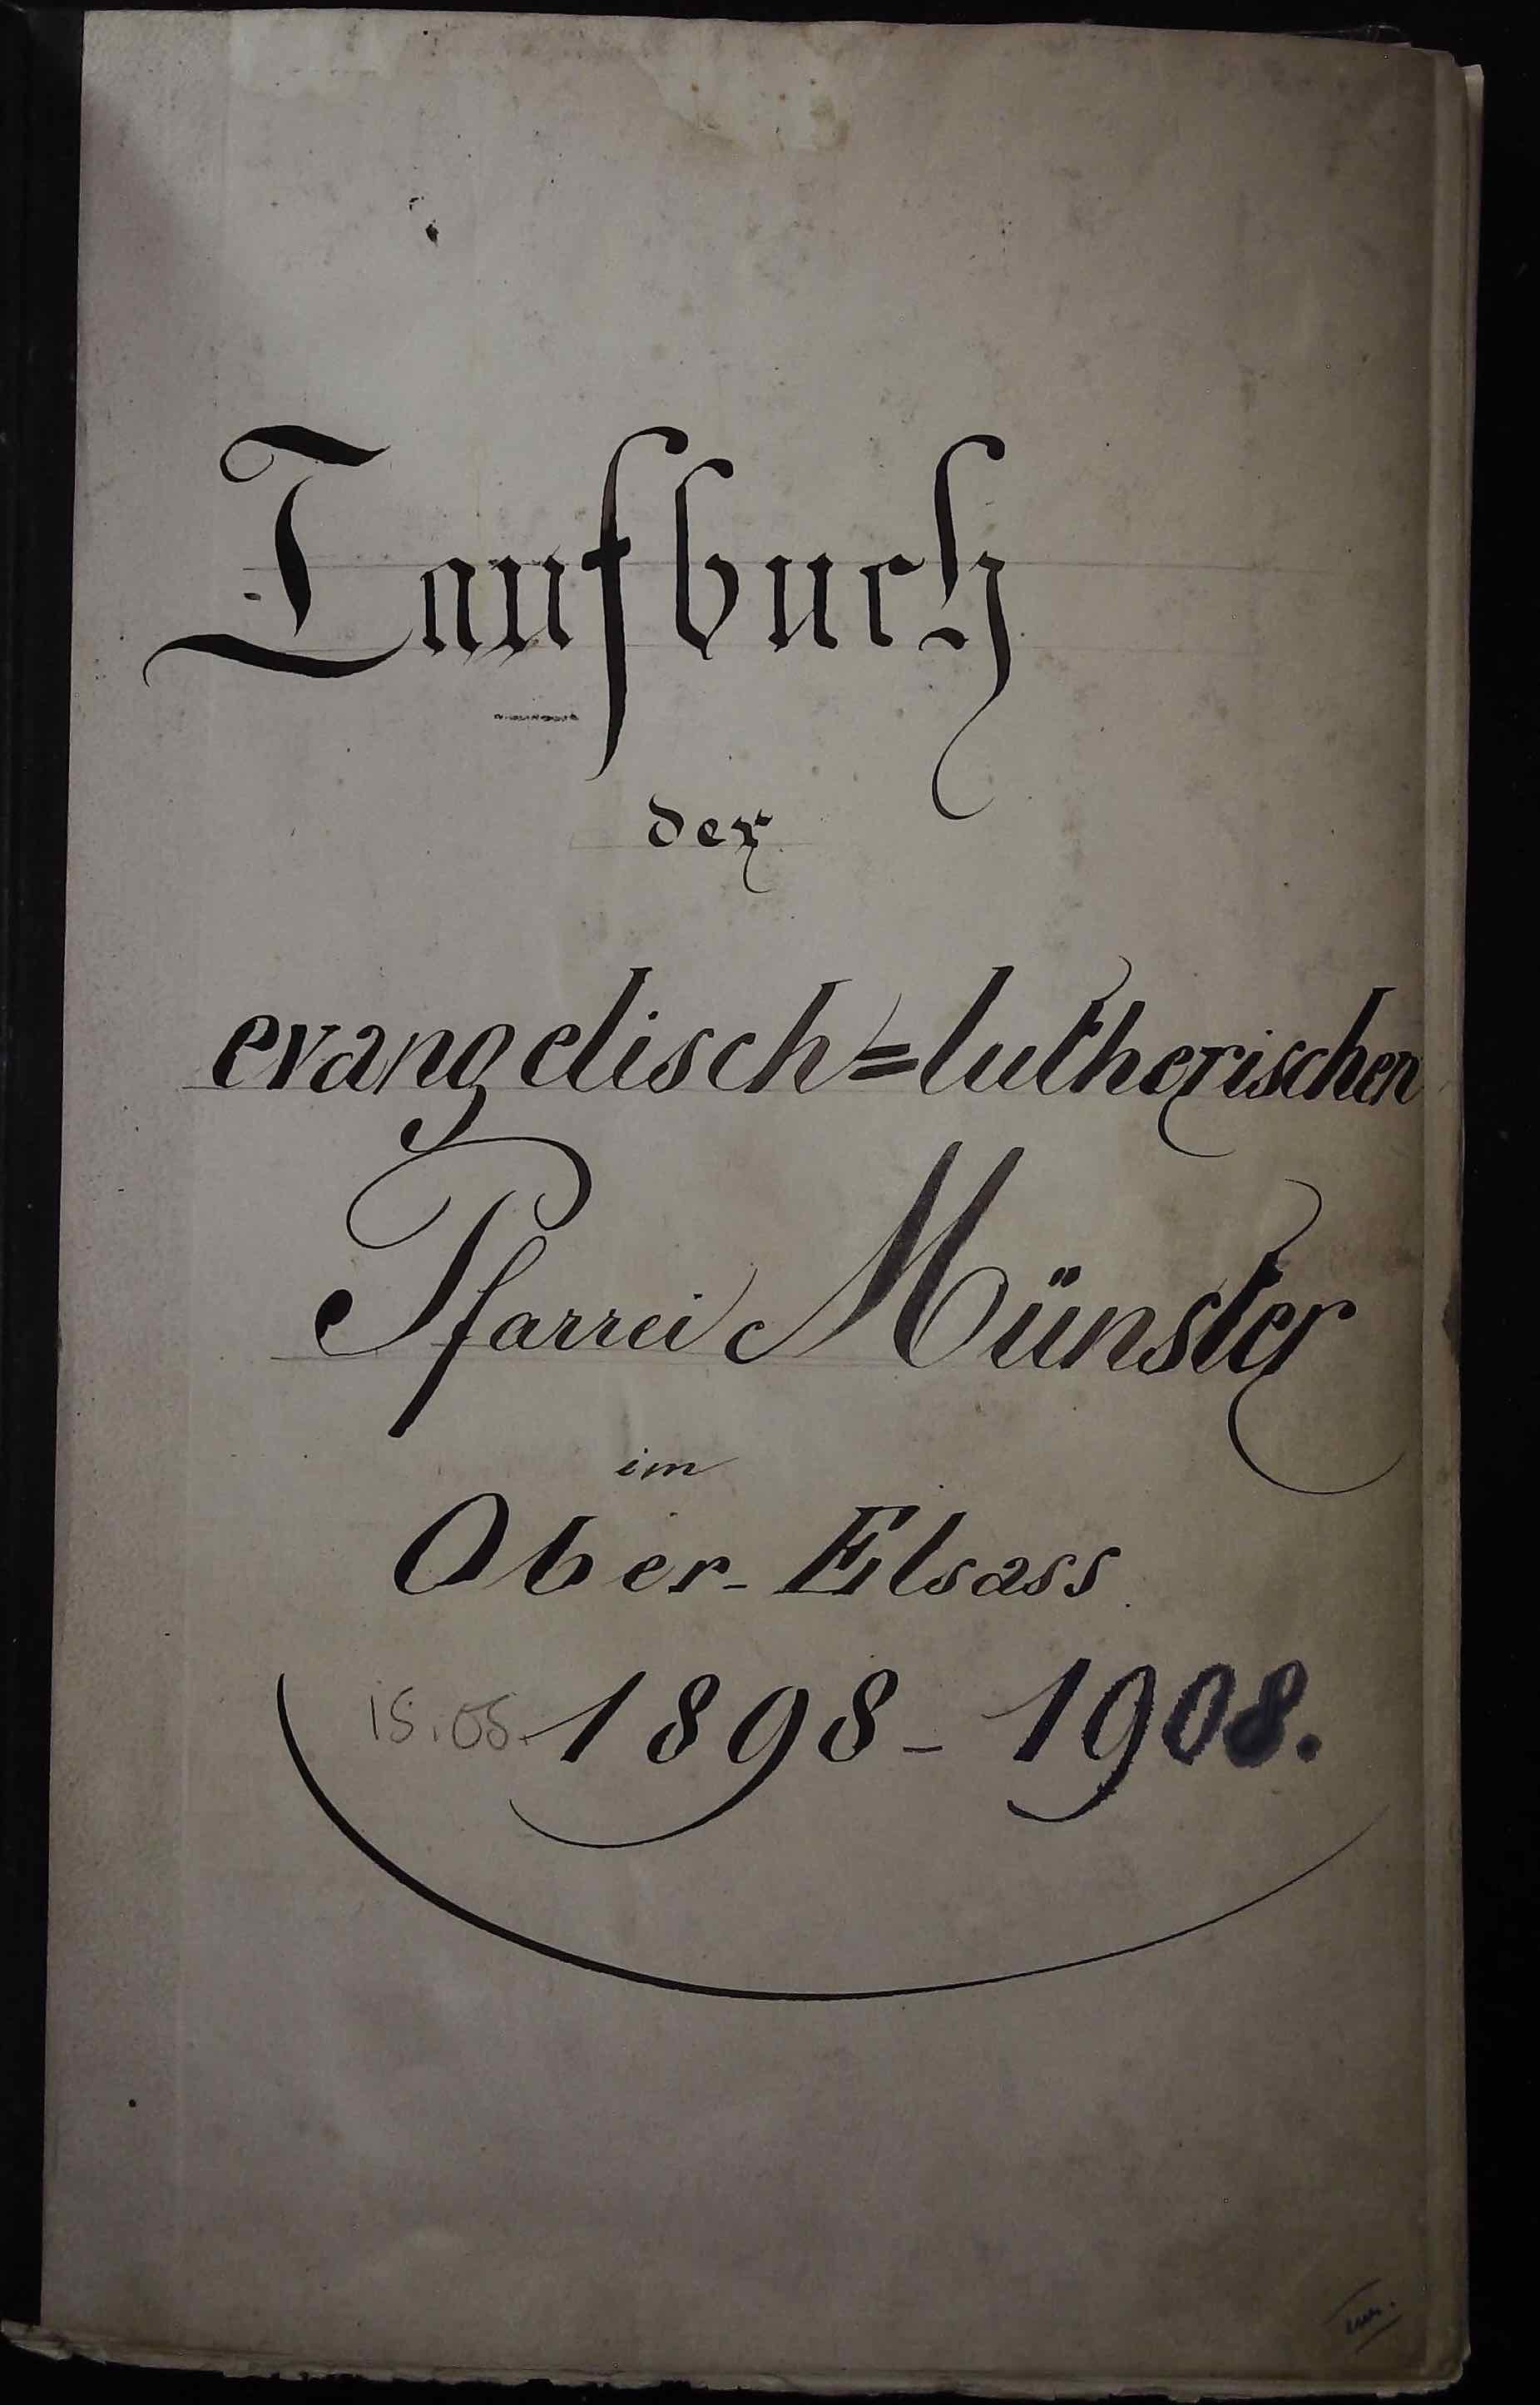 Taufbuch
der
evangelisch=lutherischen
Pfarrei Münster
im
Ober-Elsass
15.05. 1898-1908.